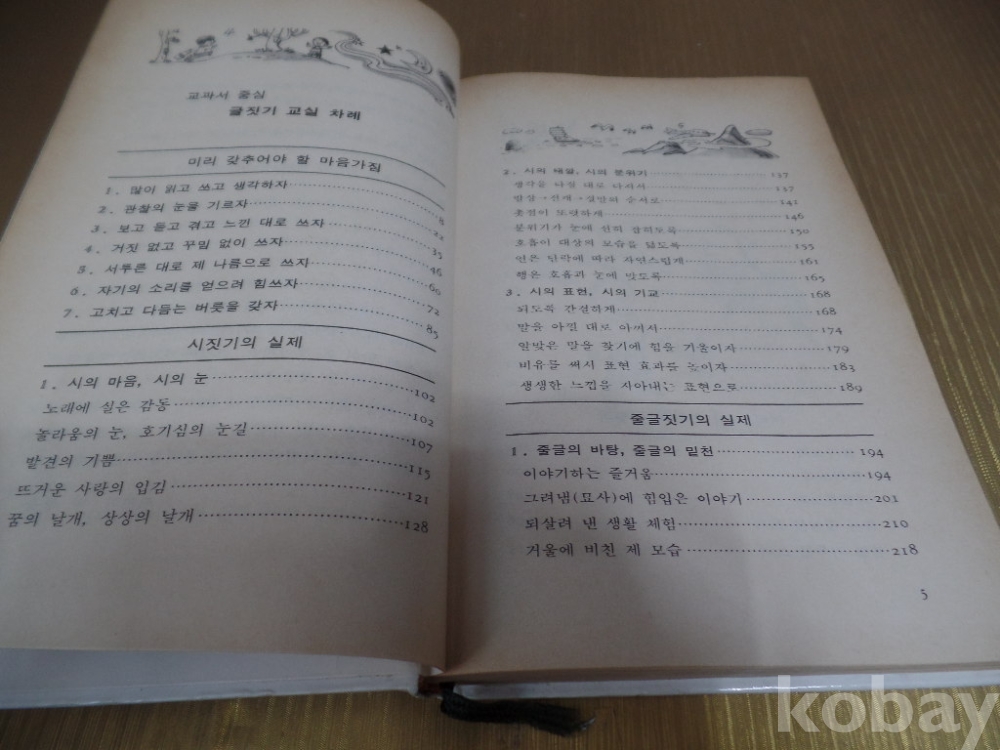 교과서 중심
글짓기 교실 차례
미리 갖추어야 할 마음가짐
1. 많이 읽고 쓰고 생각하자 8
2. 관찰의 눈을 기르자 22
3. 보고 듣고 겪고 느낀 대로 쓰자 35
4. 거짓 없고 꾸밈 없이 쓰자 46
5. 서투른 대로 제 나름으로 쓰자 60
6. 자기의 소리를 얻으려 힘쓰자 72
7. 고치고 다듬는 버릇을 갖자 85
시짓기의 실제
1. 시의 마음, 시의 눈 102
노래에 실은 감동 102
놀라움의 눈, 호기심의 눈길 107
발견의 기쁨 115
뜨거운 사랑의 입김 121
꿈의 날개, 상상의 날개 128
2. 시의 배열, 시의 분위기 137
생각을 다질 대로 다져서 137
발상→전개→결말의 순서로 141
초점이 또렷하게 146
분위기가 눈에 선히 잡히도록 150
호흡이 대상의 모습을 닮도록 155
연은 단락에 따라 자연스럽게 161
행은 호흡과 눈에 맞도록 165
3. 시의 표현, 시의 기교 168
되도록 간결하게 168
말을 아낄 대로 아껴서 174
알맞은 말을 찾기에 힘을 기울이자 179
비유를 써서 표현 효과를 높이자 183
생생한 느낌을 자아내는 표현으로 189
줄글짓기의 실제
1. 줄글의 바탕, 줄글의 밑천 194
이야기하는 즐거움 194
그려냄(묘사)에 힘입은 이야기 201
되살려 낸 생활 체험 210
거울에 비친 제 모습 218
5
kobay